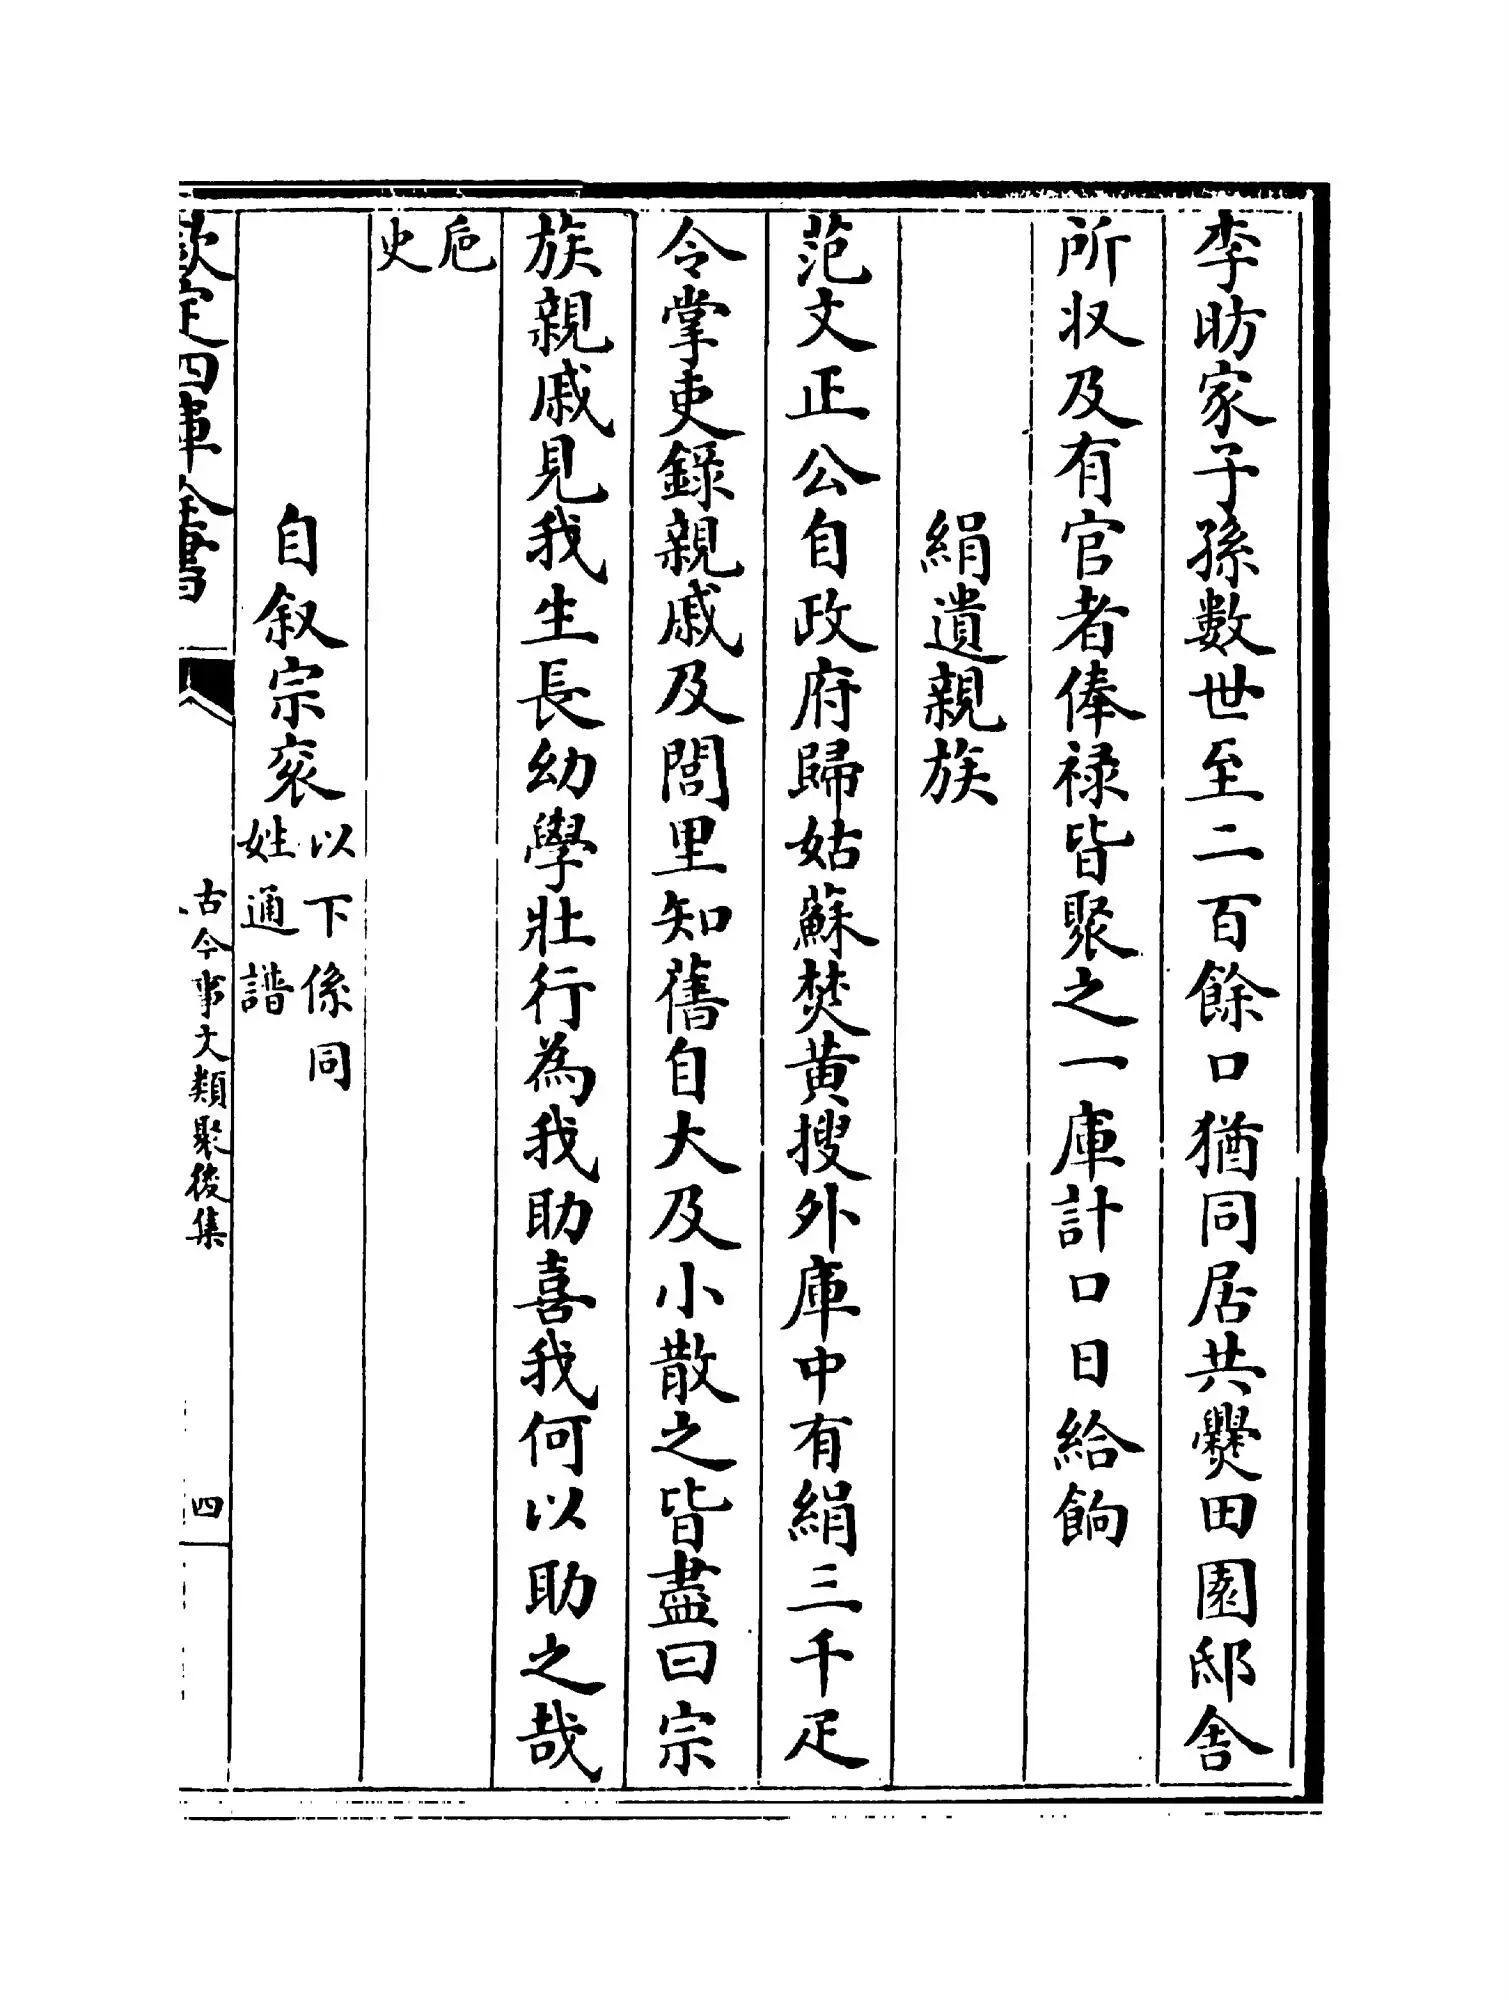 李昉家子孫數世至二百餘口猶同居共爨田園邸舎
所收及有官者俸禄皆聚之一庫計口日給餉
絹遺親族
范文正公自政府歸姑蘇焚黄搜外庫中有絹三千疋
令掌吏錄親戚及閭里知舊自大及小散之皆盡曰宗
族親戚見我生長幼學壯行為我助喜我何以助之哉
巵
史
自叙宗衮
以下係同
姓通譜
欽定四庫全書
古今事文類聚後集
四